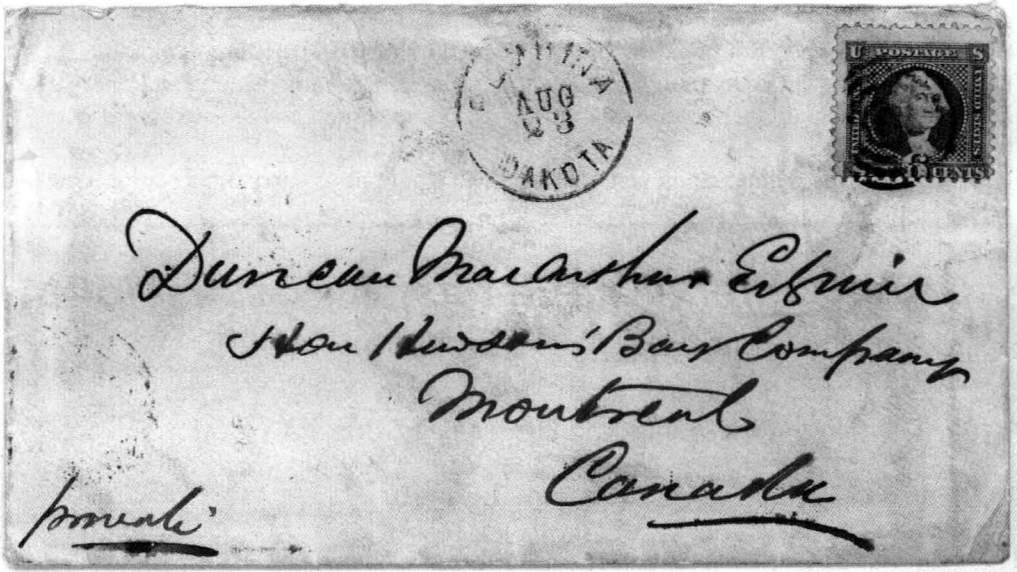 PEMBINA
AUG
23
DAKOTA
U S POSTAGE
UNITED STATES
6 CENTS
Duncan MacArthur Esquire
Hon Hudson's Bay Company
Montreal
Canada
private